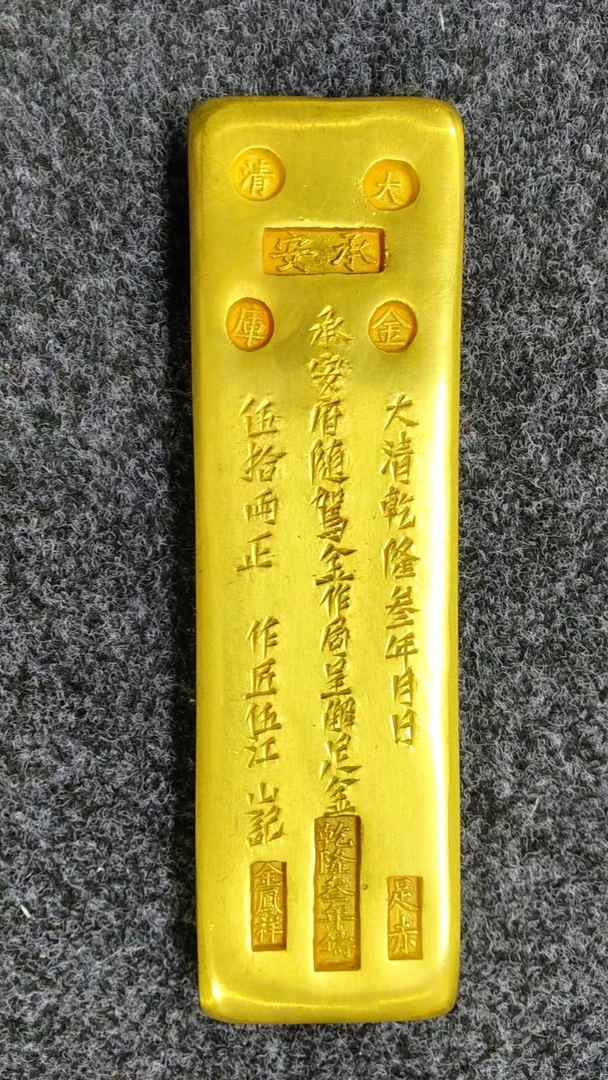 大清
承安
金庫
大清乾隆叁年月日
承安府随駕金作局呈解足金
伍拾両正 作匠伍江 山記
足赤
乾隆叁年鑄
金鳳祥